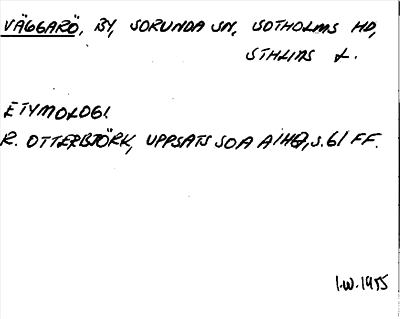 VÄGGARÖ, BY, SORUNDA SN, SOTHOLMS HD,
STHLMS L.
ETYMOLOGI
R. OTTERBJÖRK, UPPSATS SOA A1HQ, S. 61 FF.
I.W. 1955